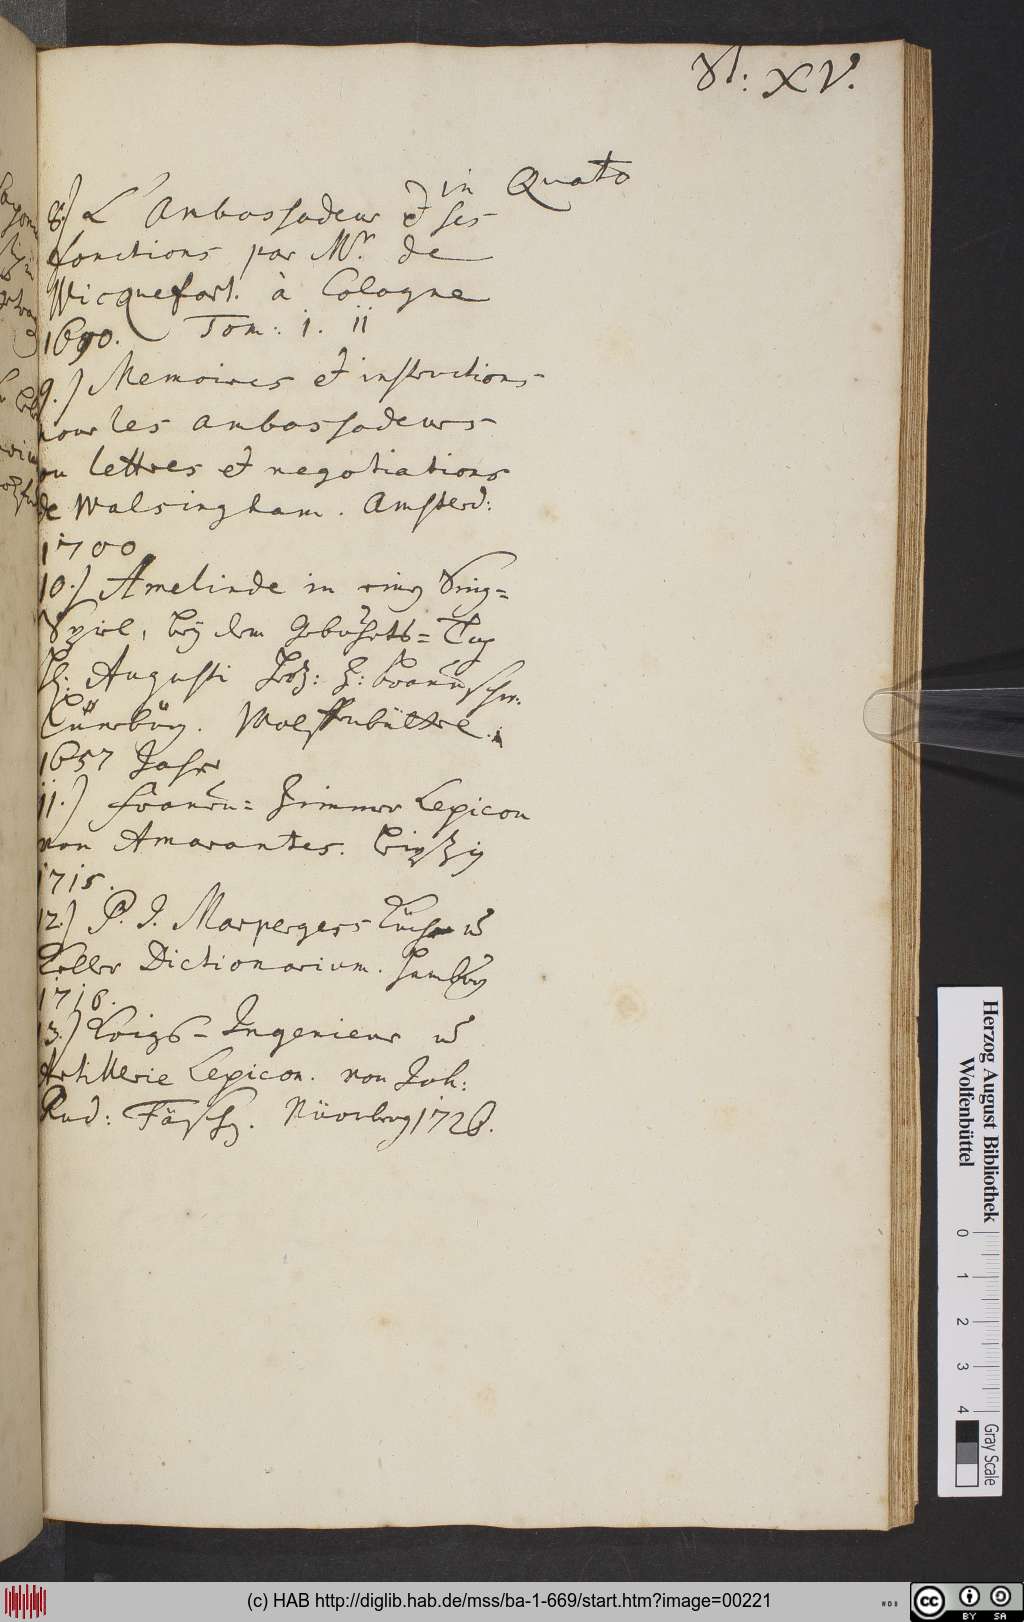 N: XV.
in Quato
8.) L'Ambassadeur et ses
fonctions par Mr. de
Wicquefort. à Cologne
1690. Tom: i. ii
9.) Memoires et instructions
pour les ambassadeurs
ou lettres et negotiations
de Walsingham. Amsterd:
1700
10.) Amelinde in eing Sing=
Spiel, beÿ dem Gebuhrts=Tag
H: Augusti Herz: z: Braunschw.
Lünebürg. Wolffenbüttel.
1657 Jahr
ii.) Frauen=Zimmer Lexicon
von Amarantes. Leipzig
1715.
12.) P. J. Marpergers Küch u
Keller Dictionarium. Hamburg
1716.
13.) Kriegs-Ingenieur u
Artillerie Lexicon. von Joh:
Rud: Fäsch. Nürnberg 1726.
Herzog August Bibliothek
Wolfenbüttel
0 1 2 3 4
Gray Scale
(c) HAB http://diglib.hab.de/mss/ba-1-669/start.htm?image=00221
WDB
cc BY SA